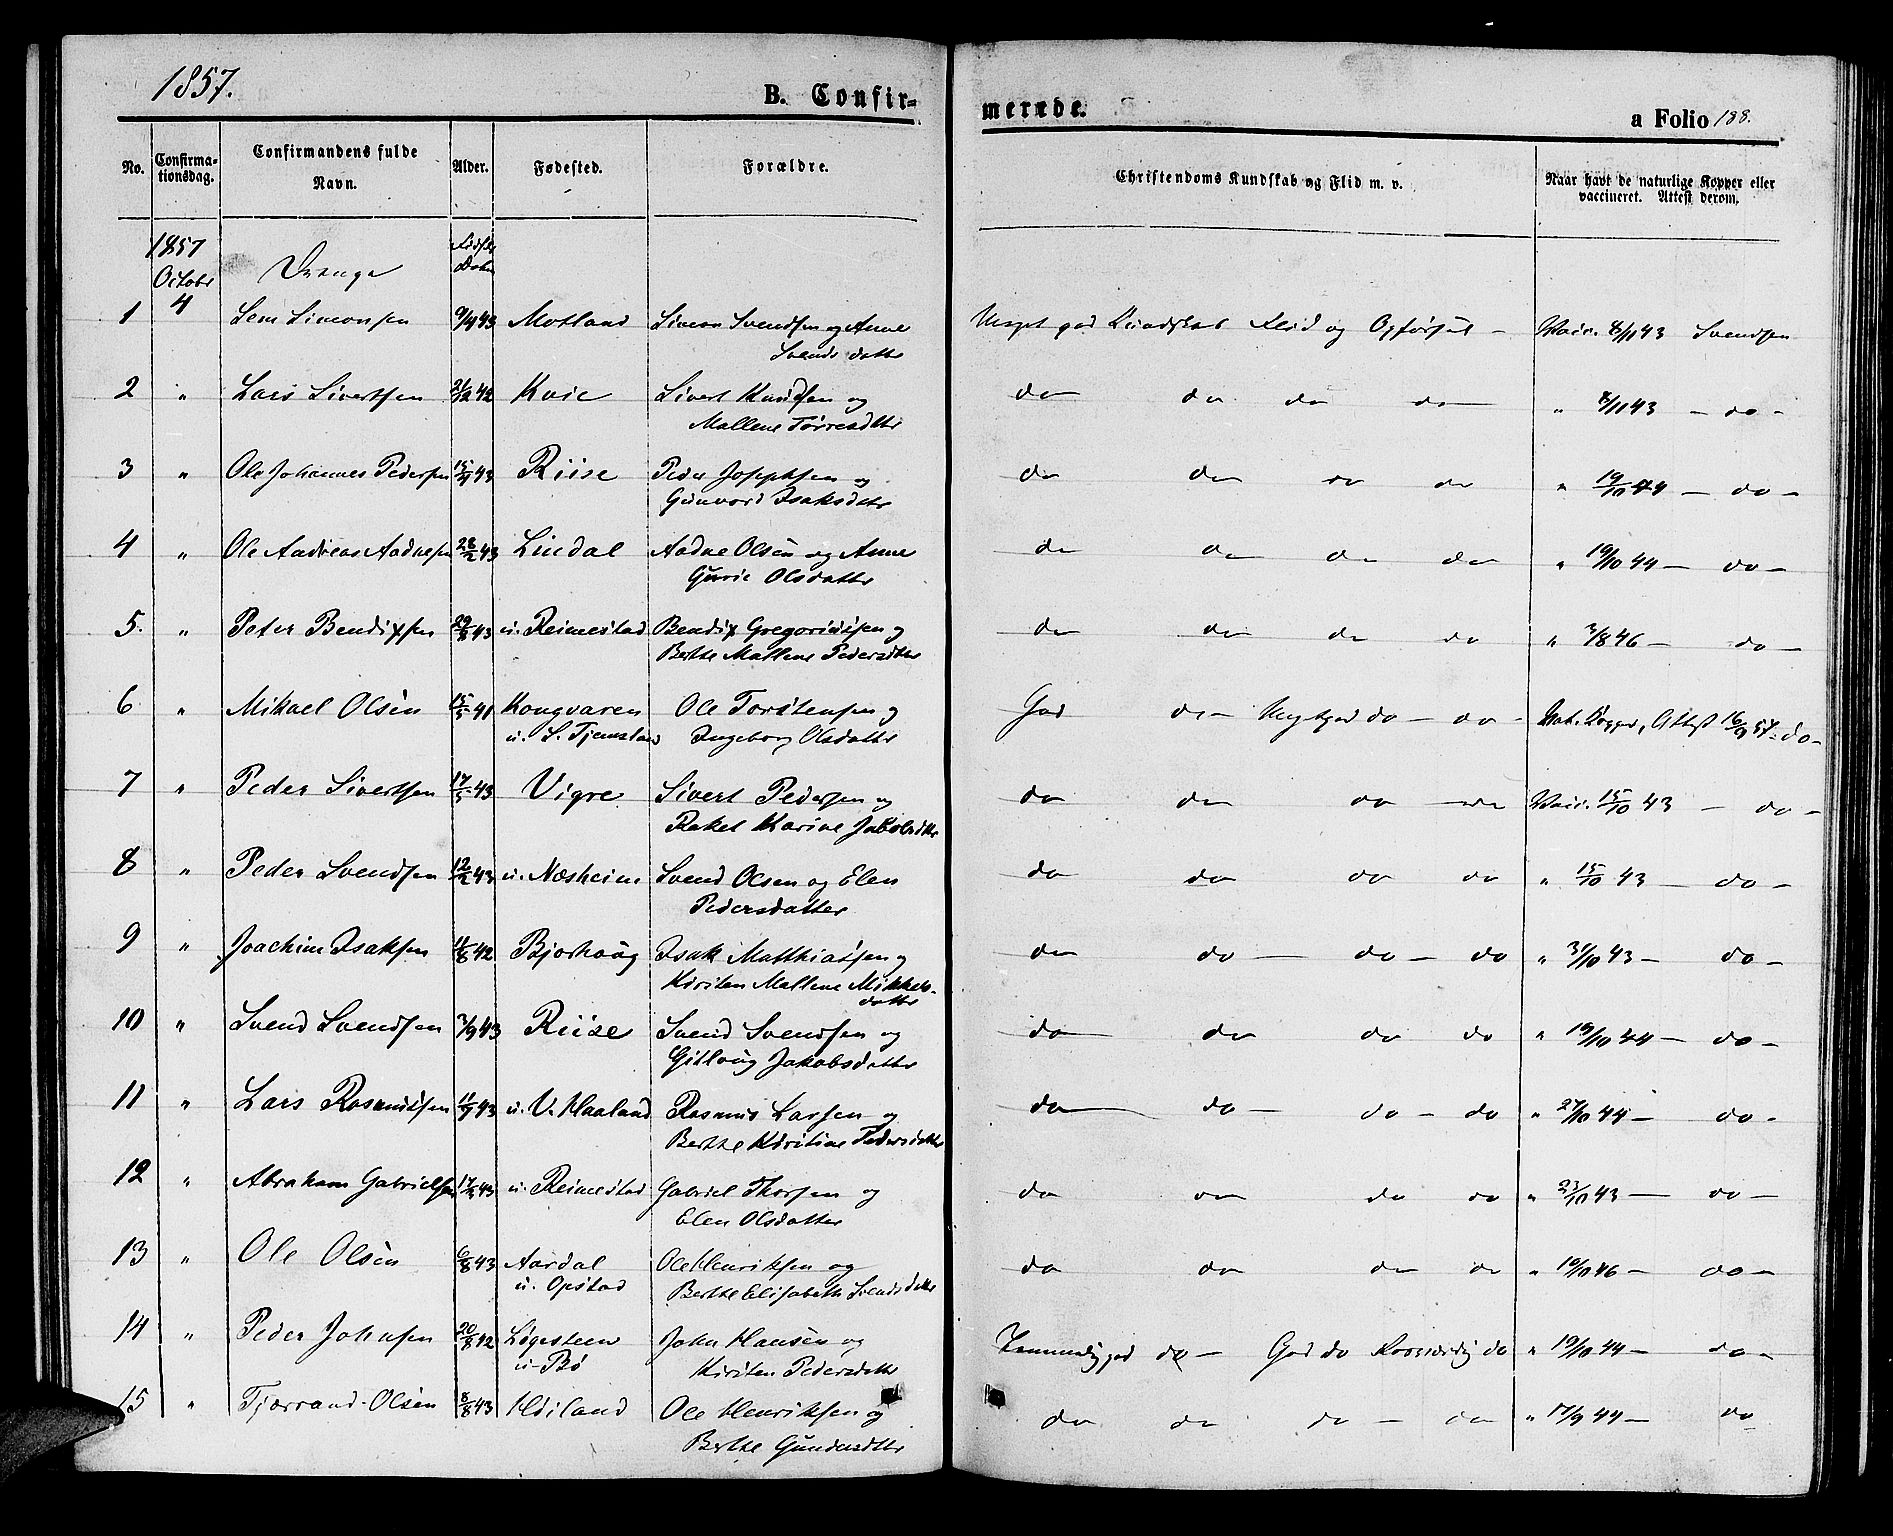 1857.
B. Confir-
merede.
a Folio 188.
No.
Confirmationsdag.
Confirmandens fulde Navn.
Alder.
Fødested.
Forældre.
Christendoms Kundskab og Flid m. v.
Naar havt de naturlige Kopper eller vaccineret. Attest derom.
1857 October 4 Drenge Fødsels Datum
1 Simonsen 9/4 43 Motland Simon Svendsen og Anne Svendsdatter Meget god Kundskab Flid og Opførsel - Vacc. 8/11 43 Svendsen
2 " Lars Sivertsen 21/12 42 Kvie Sivert Knudsen og Mallene Torresdttr do do do do " 8/11 43 - do -
3 " Ole Johannes Pedersen 15/4 43 Riise Peder Josephsen og Gunvord Isaksdttr do do do do " 19/10 44 - do -
4 " Ole Andreas Aadnesen 28/2 43 Lindal Aadne Olsen og Anne Gurie Olsdatter do do do do " 19/10 44 - do -
5. " Peter Bendixsen 29/8 43 u. Reimestad Bendix Gregoriussen og Berthe Mallene Pedersdttr do do do do " 3/8 46 - do -
6 " Mikael Olsen 15/5 41 Kongvaren u. S. Tjemsland Ole Torstensen og Ingeborg Olsdatter God do - Megetgod do - do - Nat. Kopper, Attest 16/9 57 - do -
7 " Peder Sivertsen 17/5 43 Vigre Sivert Pedersen og Rakel Karine Jakobsdttr do do do do Vacc. 15/10 43 - do -
8 " Peder Svendsen 12/2 43 u. Næsheim Svend Olsen og Elen Pedersdatter do do do do " 15/10 43 - do -
9 " Joachim Isaksen 11/8 42 Bjorhaug Isak Matthiassen og Kirsten Mallene Mikkelsdatter do do - do - do " 31/10 43 - do -
10 " Svend Svendsen 3/9 43 Riise Svend Svendsen og Gitlaug Jakobsdatter do do do do " 19/10 44 - do -
11 " Lars Rasmussen 11/9 43 u. V. Haaland Rasmus Larsen og Berthe Kirstine Pedersdttr do do - do - do " 27/10 44 - do -
12 " Abraham Gabrielsen 17/2 43 u. Reimestad Gabriel Thorsen og Elen Olsdatter do do do do " 23/10 43 - do -
13 " Ole Olsen 6/8 43 Aardal u. Opstad Ole Henriksen og Berthe Elisabeth Svendsdatter do do do do " 19/10 46 - do -
14 " Peder Johnsen 20/8 42 Løgesteen u. Bø John Hansen og Kirsten Pedersdatter Temmelig god do - God do Roesværdig do " 19/10 44 - do -
15 " Tjerrand Olsen 8/8 43 Høiland Ole Henriksen og Berthe Gundersdttr do do do - do " 17/9 44 - do